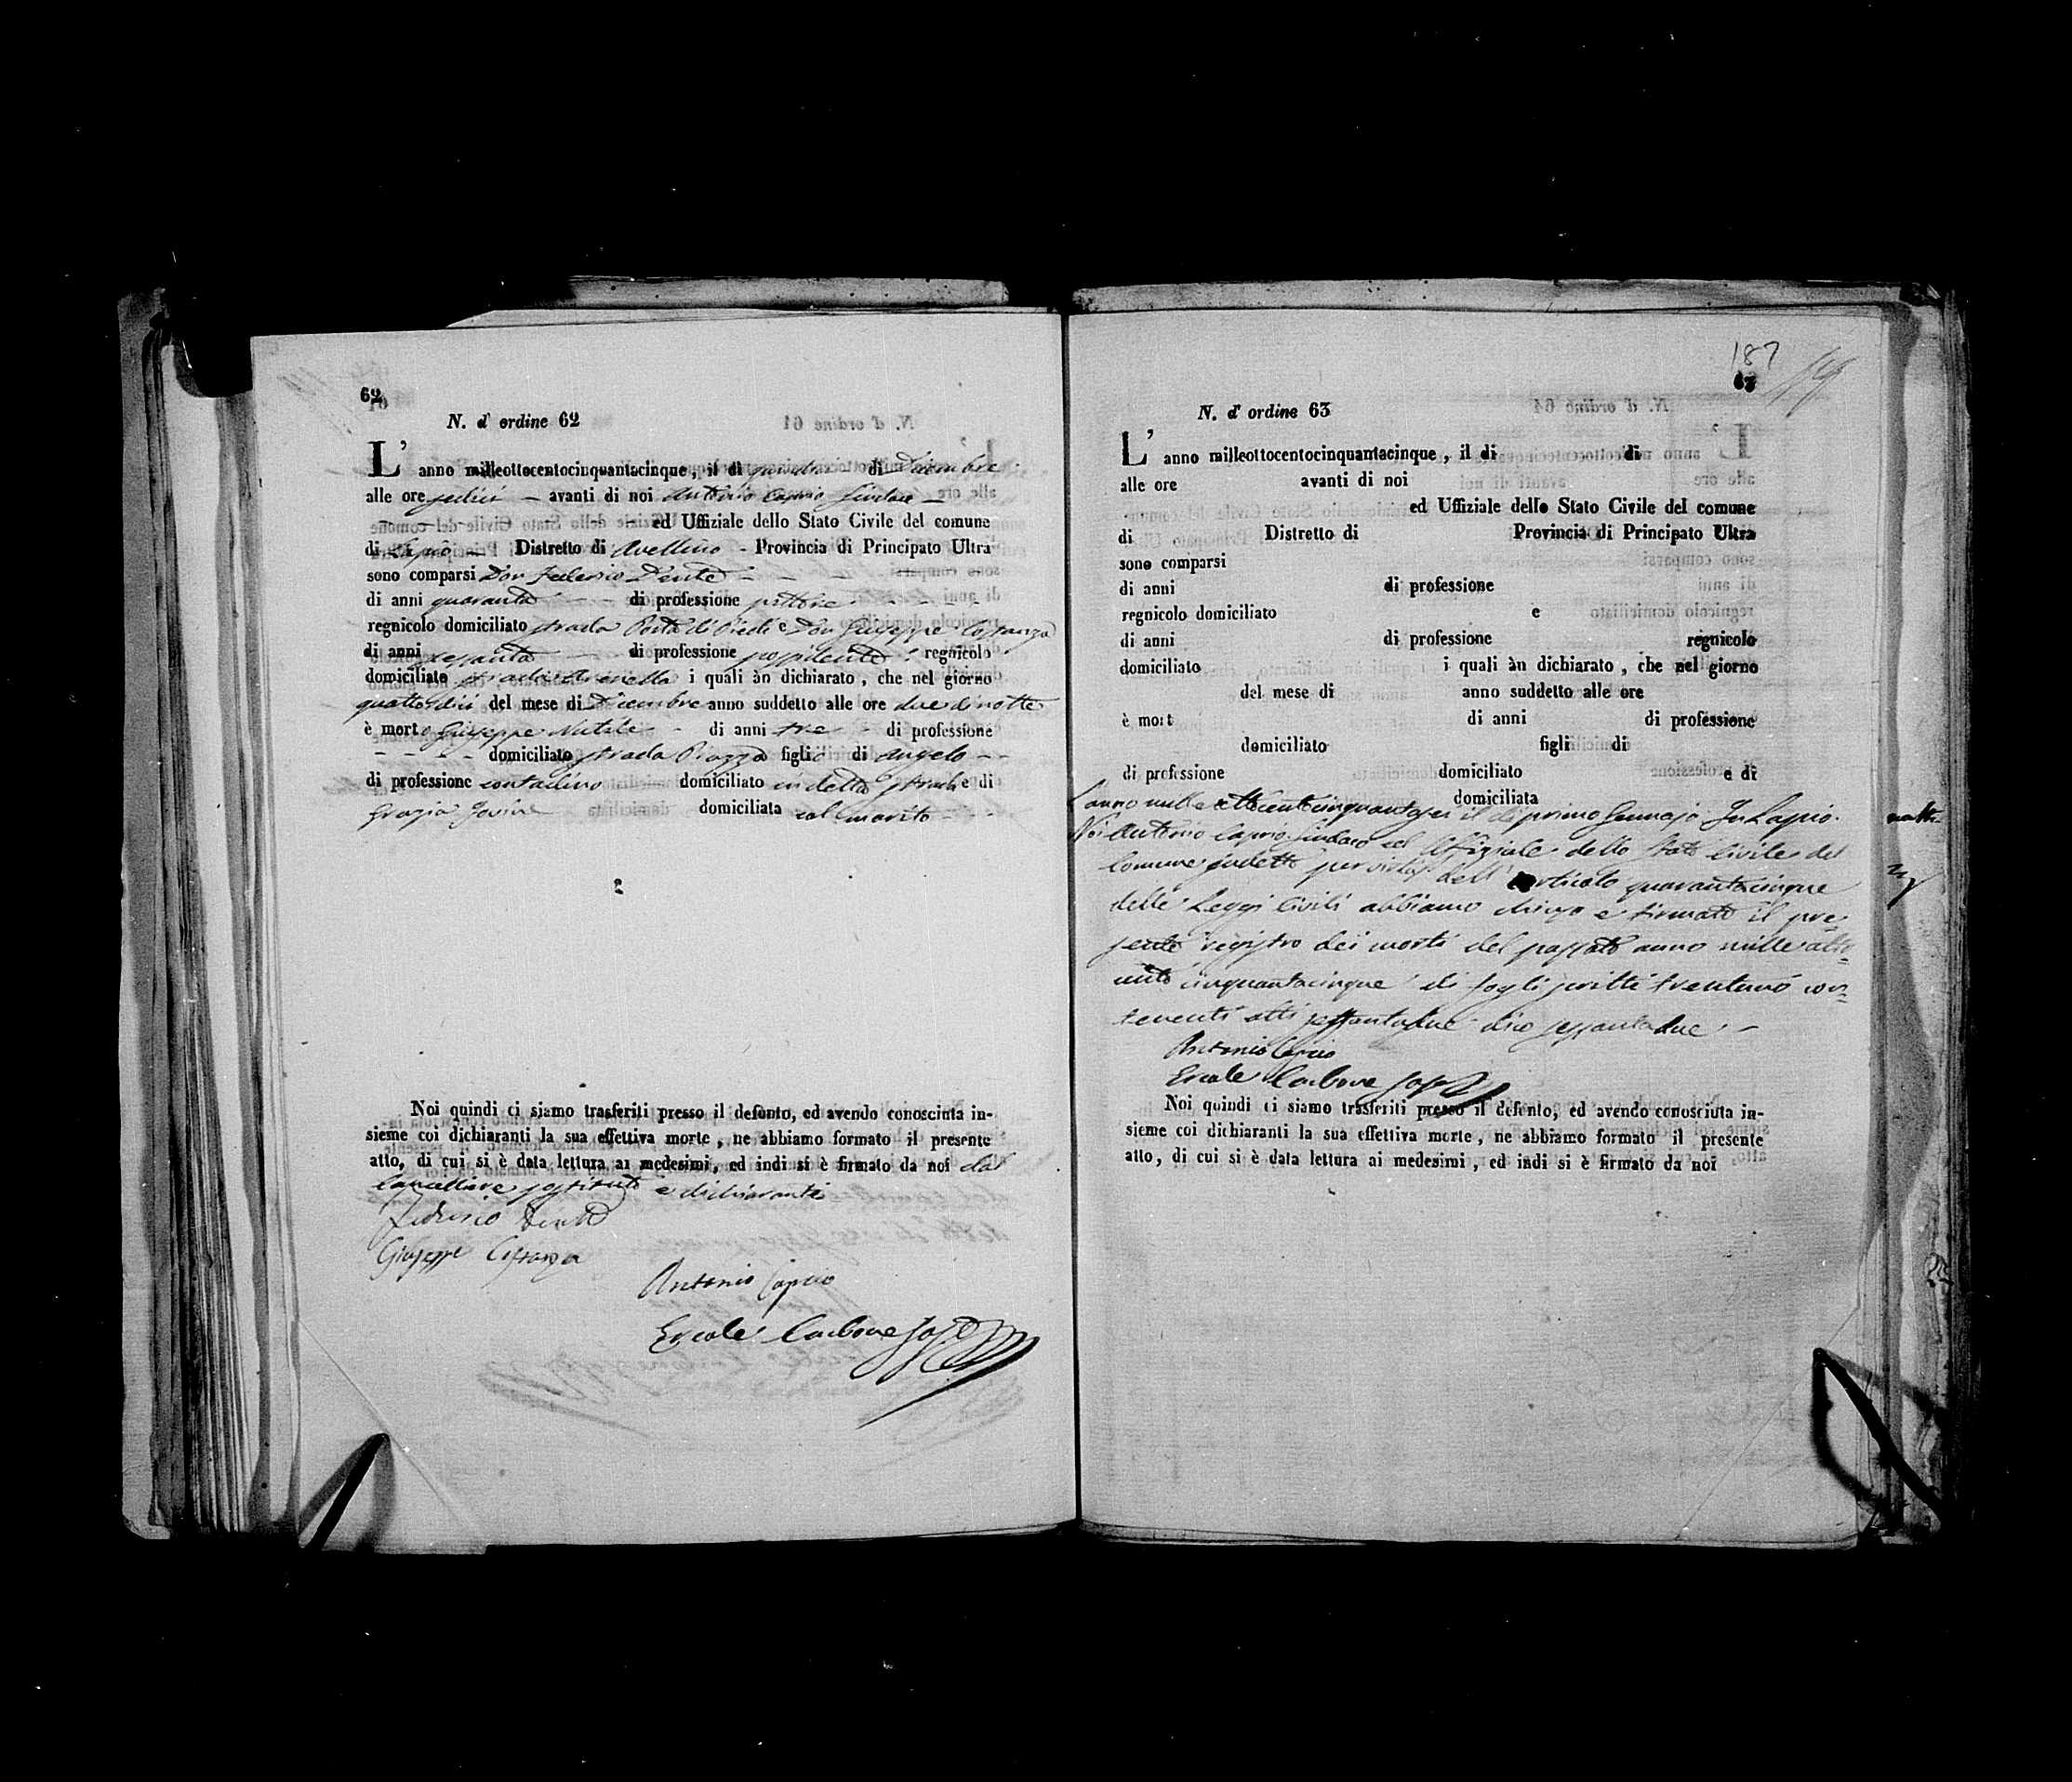 62
N. d' ordine 62
L' anno milleottocentocinquantacinque, il di quindici di Dicembre
alle ore sedici — avanti di noi Antonio Caprio Sindaco —
ed Uffiziale dello Stato Civile del comune
di Lapio — Distretto di Avellino - Provincia di Principato Ultra
sono comparsi Don Federico Dente
di anni quaranta di professione pittore
regnicolo domiciliato strada Porta di Piedi e Don Giuseppe Costanza
di anni sessanta di professione possidente regnicolo
domiciliato strada i quali àn dichiarato, che nel giorno
quattordici del mese di Dicembre anno suddetto alle ore due di notte
è morto Giuseppe Natale - di anni tre - di professione
- - - - domiciliato strada Piazza figlio di Angelo - -
di professione contadino domiciliato in detta strada e di
Grazia Iovine domiciliata col marito - - -
Noi quindi ci siamo trasferiti presso il defonto, ed avendo conosciuta in-
sieme coi dichiaranti la sua effettiva morte, ne abbiamo formato il presente
atto, di cui si è data lettura ai medesimi, ed indi si è firmato da noi dal
Cancelliere sostituto e dichiaranti
Federico Dente
Giuseppe Costanza
Antonio Caprio
Ercole Carbone
187
63
N. d' ordine 63
L' anno milleottocentocinquantacinque, il di di
alle ore avanti di noi
ed Uffiziale dello Stato Civile del comune
di Distretto di Provincia di Principato Ultra
sono comparsi
di anni di professione
regnicolo domiciliato e
di anni di professione regnicolo
domiciliato i quali àn dichiarato, che nel giorno
del mese di anno suddetto alle ore
è mort di anni di professione
domiciliato figli di
di professione domiciliato e di
domiciliata
L'anno mille ottocentocinquantasei il di primo Gennajo In Lapio.
Noi Antonio Caprio Sindaco ed Uffiziale dello Stato Civile del
Comune sudetto dell' articolo quarantacinque
delle Leggi Civili abbiamo chiuso e firmato il pre=
sente registro dei morti del passato anno mille otto=
cento cinquantacinque di fogli scritti trentuno con=
tenenti atti sessantadue dico sessantadue -
Antonio Caprio
Ercole Carbone
Noi quindi ci siamo trasferiti presso il defonto, ed avendo conosciuta in-
sieme coi dichiaranti la sua effettiva morte, ne abbiamo formato il presente
atto, di cui si è data lettura ai medesimi, ed indi si è firmato da noi